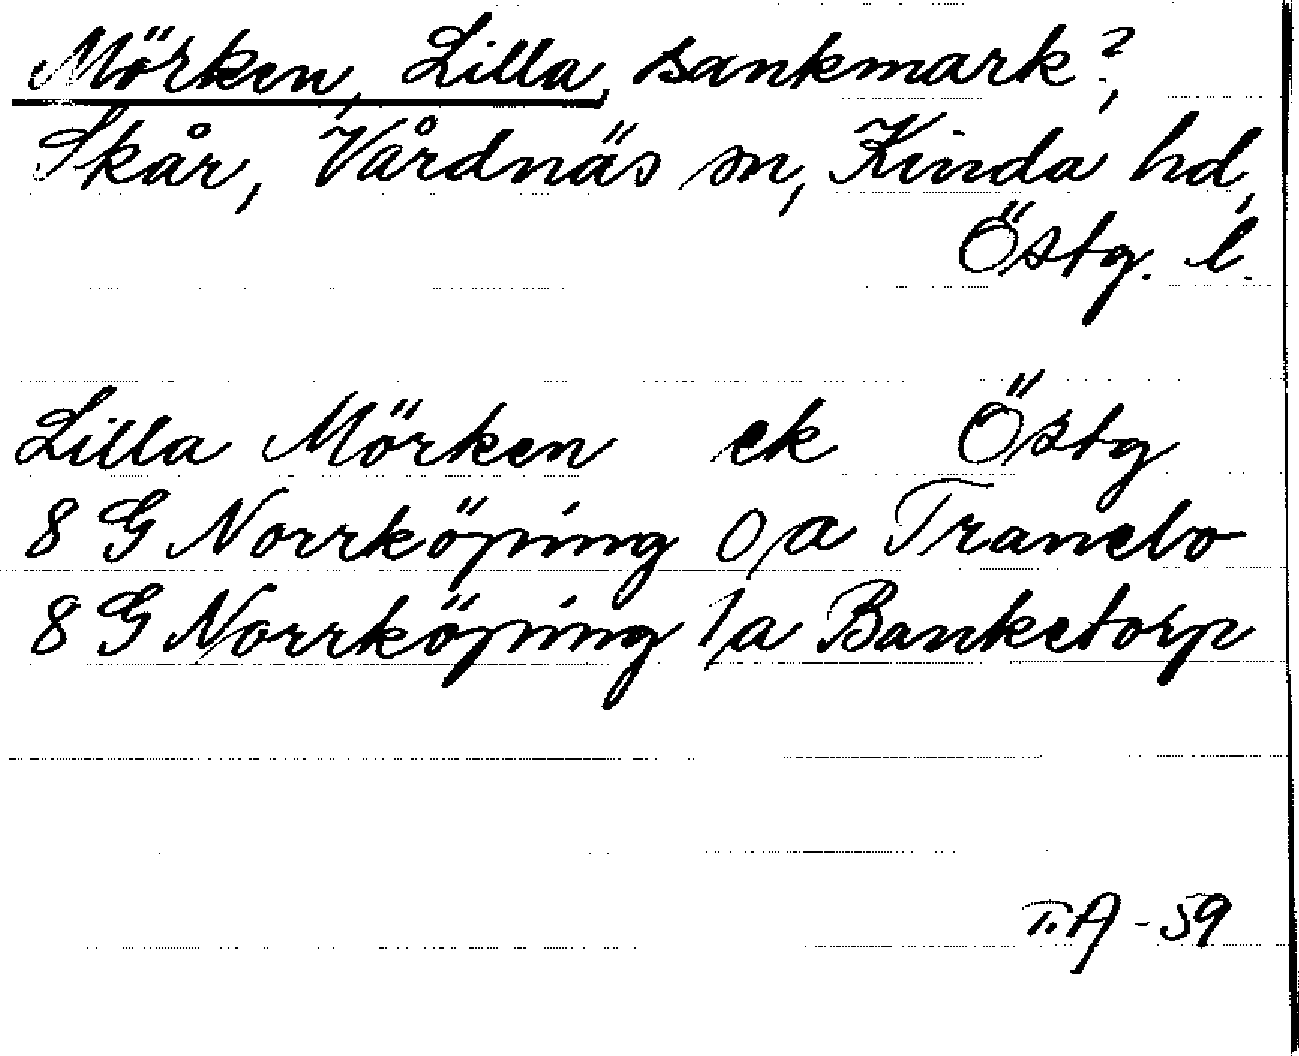 Mörken, Lilla, sankmark?,
Skår, Vårdnäs sn, Kinda hd,
Östg. l.
Lilla Mörken ek Östg
8 G Norrköping 0/a Tranebo
8 G Norrköping 1/a Banketorp
T.A - 59